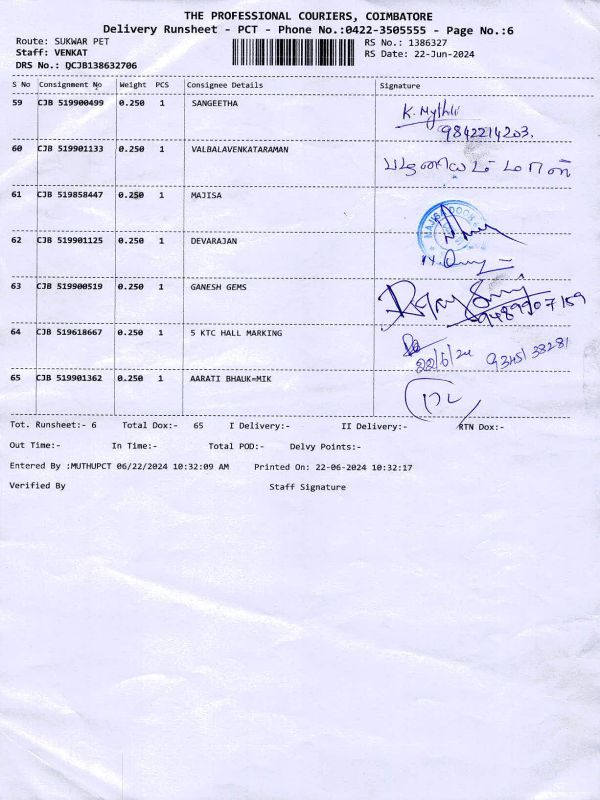 THE PROFESSIONAL COURIERS, COIMBATORE
Delivery Runsheet - PCT - Phone No.:0422-3505555 - Page No.:6
Route: SUKWAR PET RS No.: 1386327
Staff: VENKAT RS Date: 22-Jun-2024
DRS No.: QCJB138632706
S No Consignment No Weight PCS Consignee Details Signature
59 CJB 519900499 0.250 1 SANGEETHA K. Mythili
9842214203.
60 CJB 519901133 0.250 1 VALBALAVENKATARAMAN
61 CJB 519858447 0.250 1 MAJISA
62 CJB 519901125 0.250 1 DEVARAJAN
63 CJB 519900519 0.250 1 GANESH GEMS
9489907159
64 CJB 519618667 0.250 1 5 KTC HALL MARKING
22/6/24
65 CJB 519901362 0.250 1 AARATI BHAUK=MIK
Tot. Runsheet:- 6 Total Dox:- 65 I Delivery:- II Delivery:- RTN Dox:-
Out Time:- In Time:- Total POD:- Delvy Points:-
Entered By :MUTHUPCT 06/22/2024 10:32:09 AM Printed On: 22-06-2024 10:32:17
Verified By Staff Signature